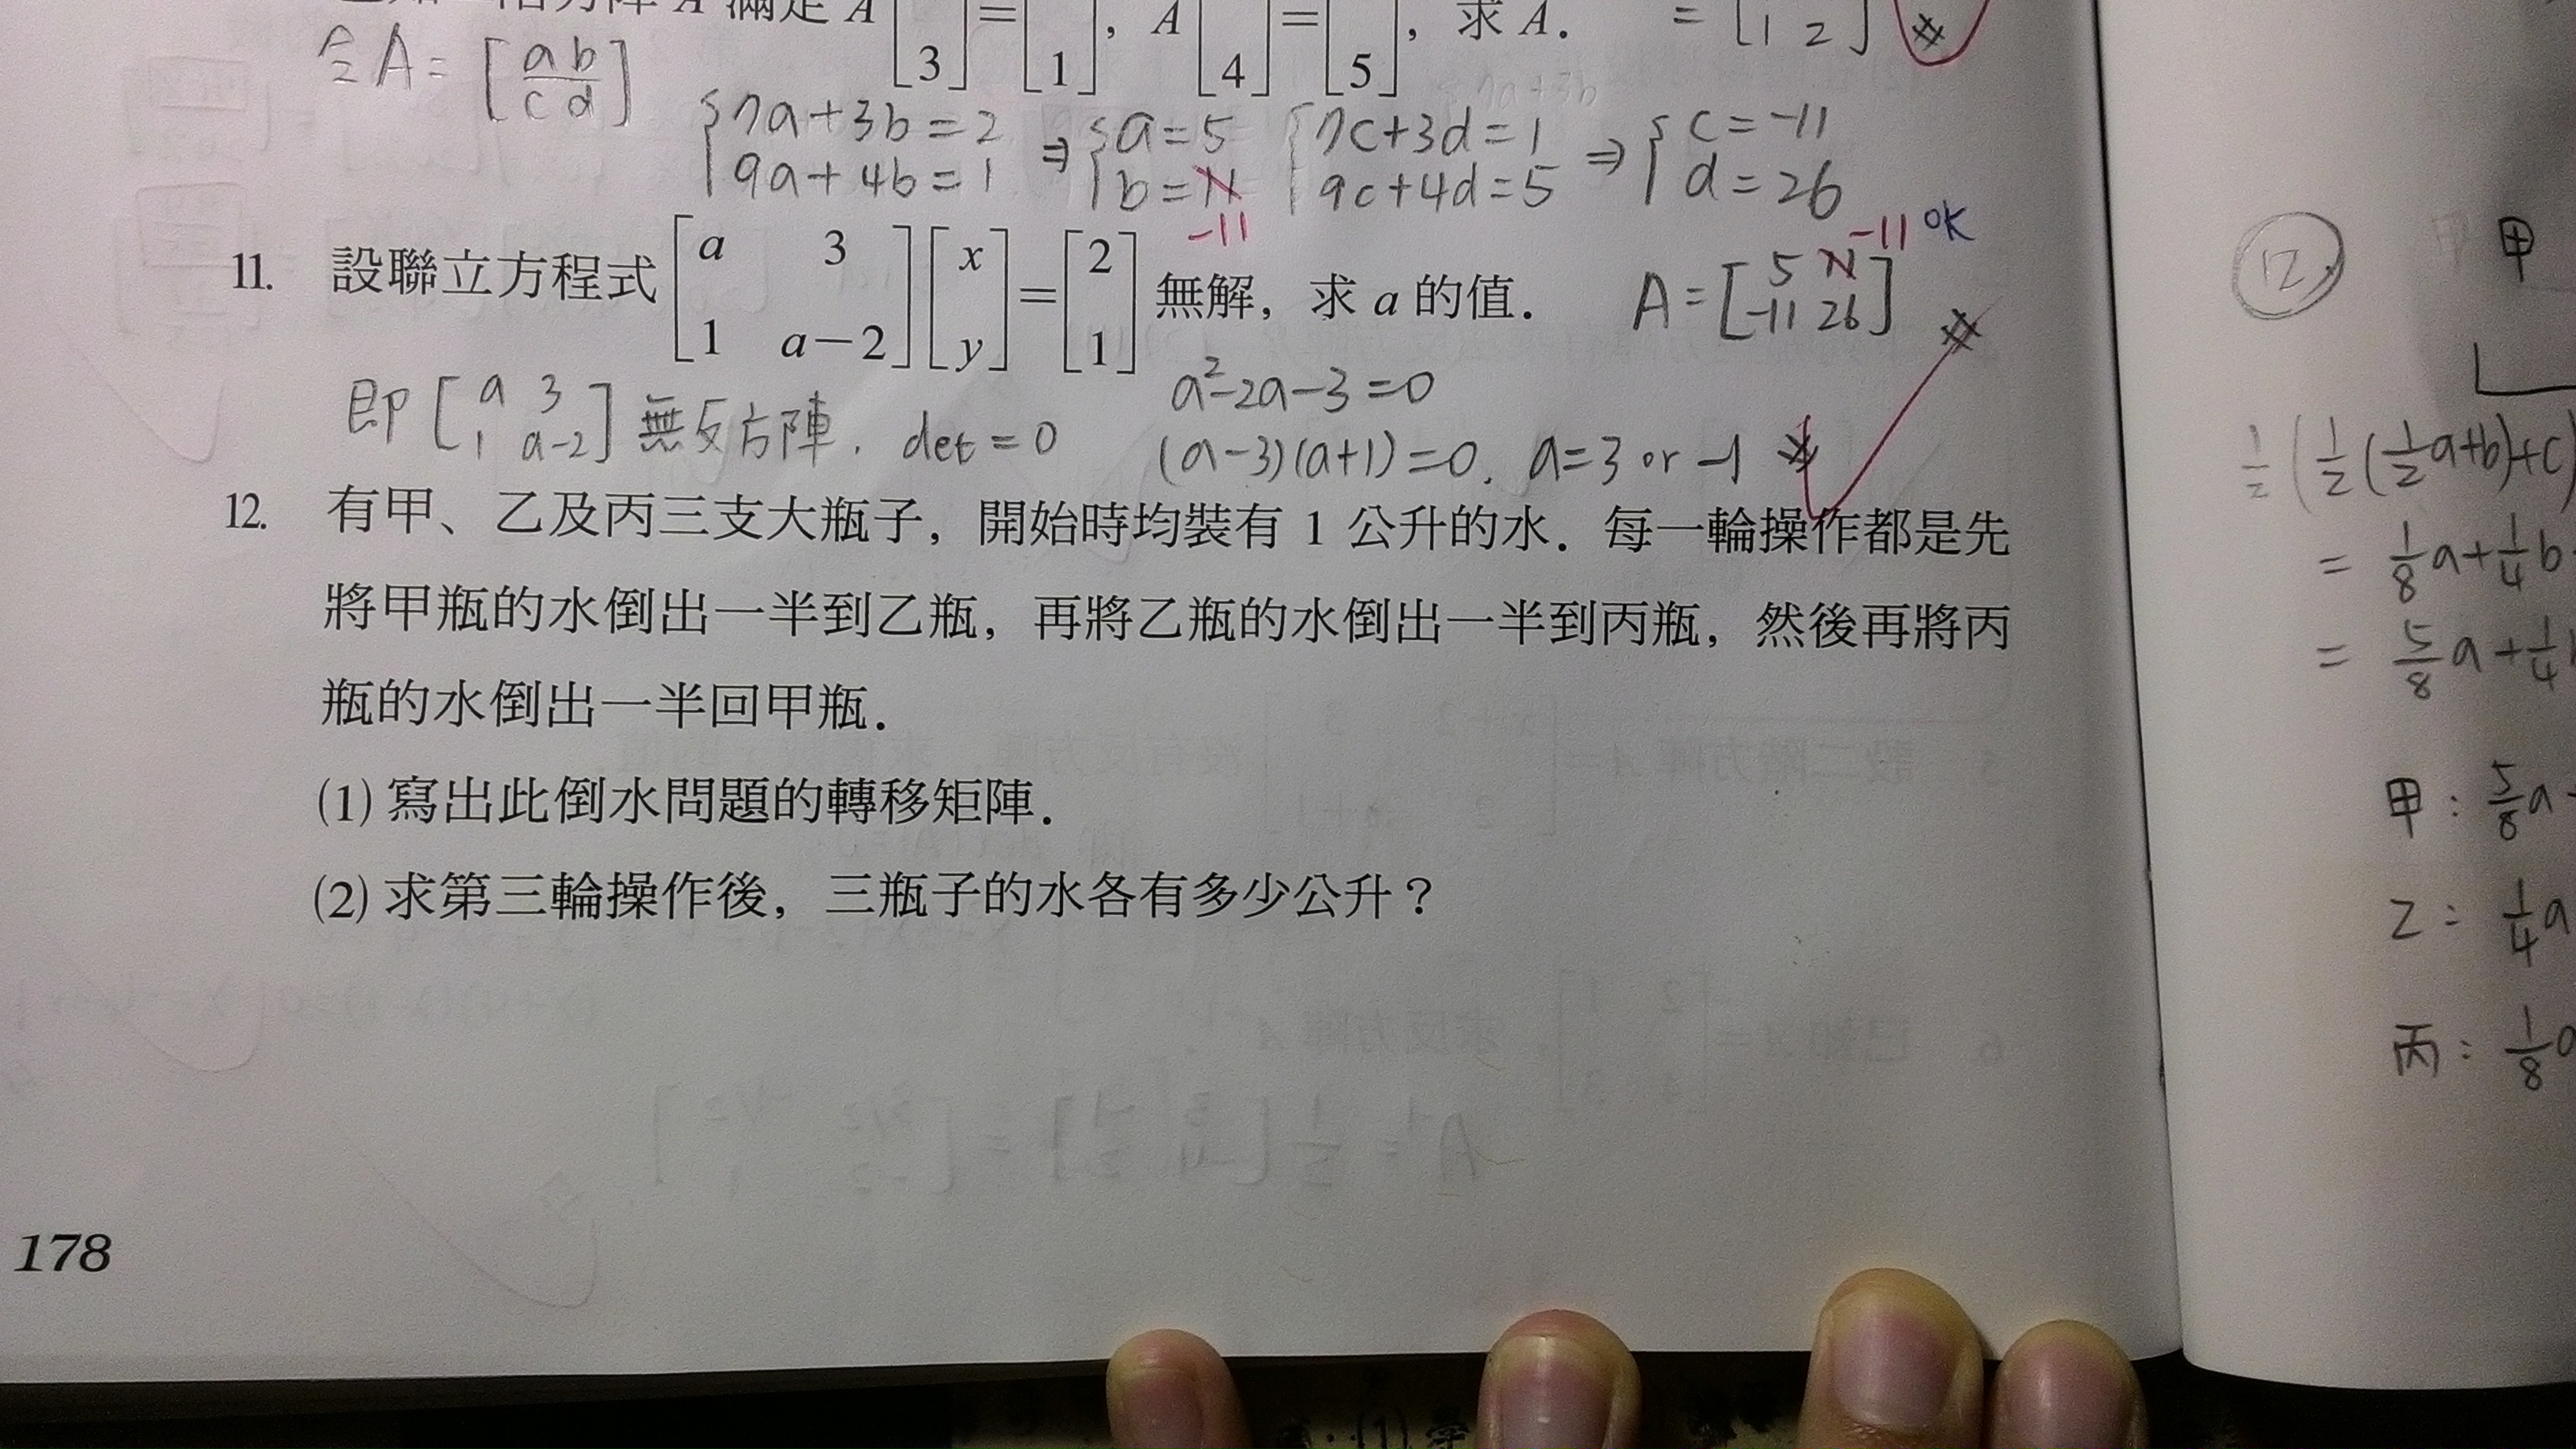 滿足 A[ 3 ]=[ 1 ], A[ 4 ]=[ 5 ], 求 A. = [ 1 2 ] #
令 A = [a b c d]
{ 7a+3b=2 9a+4b=1 ⇒ { a=5 b=-11 { 7c+3d=1 9c+4d=5 ⇒ { c=-11 d=26
11. 設聯立方程式 [a 3 1 a-2] [x y] = [2 1] 無解, 求 a 的值.
A = [5 -11 -11 26] OK #
即 [a 3 1 a-2] 無反方陣. det = 0
a²-2a-3=0
(a-3)(a+1)=0. a=3 or -1 #
12. 有甲、乙及丙三支大瓶子, 開始時均裝有 1 公升的水. 每一輪操作都是先
將甲瓶的水倒出一半到乙瓶, 再將乙瓶的水倒出一半到丙瓶, 然後再將丙
瓶的水倒出一半回甲瓶.
(1) 寫出此倒水問題的轉移矩陣.
(2) 求第三輪操作後, 三瓶子的水各有多少公升?
178
12. 甲
1/2 (1/2 (1/2 a+b)+c)
= 1/8 a + 1/4 b
= 5/8 a + 1/4
甲: 5/8 a
乙: 1/4 a
丙: 1/8 a